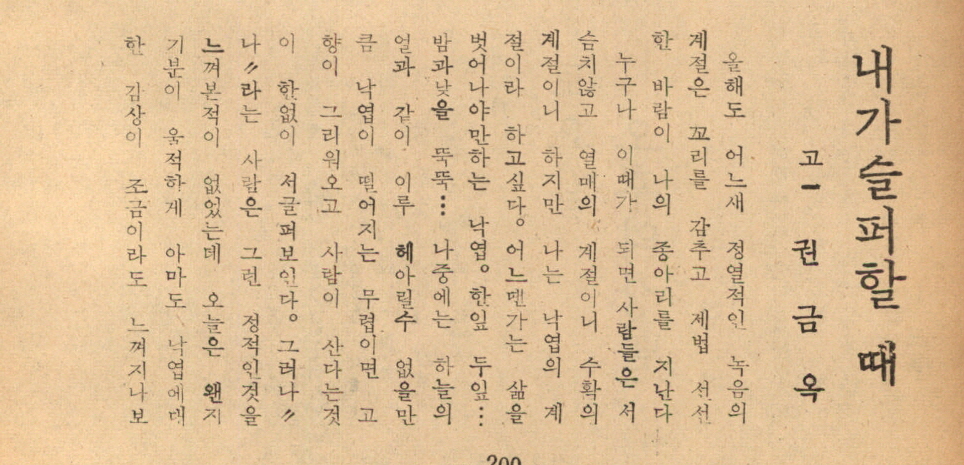 내가슬퍼할 때
고一 권 금 옥
올해도 어느새 정열적인 녹음의
계절은 꼬리를 감추고 제법 선선
한 바람이 나의 종아리를 지난다
누구나 이때가 되면 사람들은 서
슴치않고 열매의 계절이니 수확의
계절이니 하지만 나는 낙엽의 계
절이라 하고싶다。어느땐가는 삶을
벗어나야만하는 낙엽。한잎 두잎…
밤과낮을 뚝뚝… 나중에는 하늘의
얼과 같이 이루 헤아릴수 없을만
큼 낙엽이 떨어지는 무렵이면 고
향이 그리워오고 사람이 산다는것
이 한없이 서글퍼보인다。그러나〃
나〃라는 사람은 그런 정적인것을
느껴본적이 없었는데 오늘은 왠지
기분이 움적하게 아마도 낙엽에대
한 감상이 조금이라도 느껴지나보
200